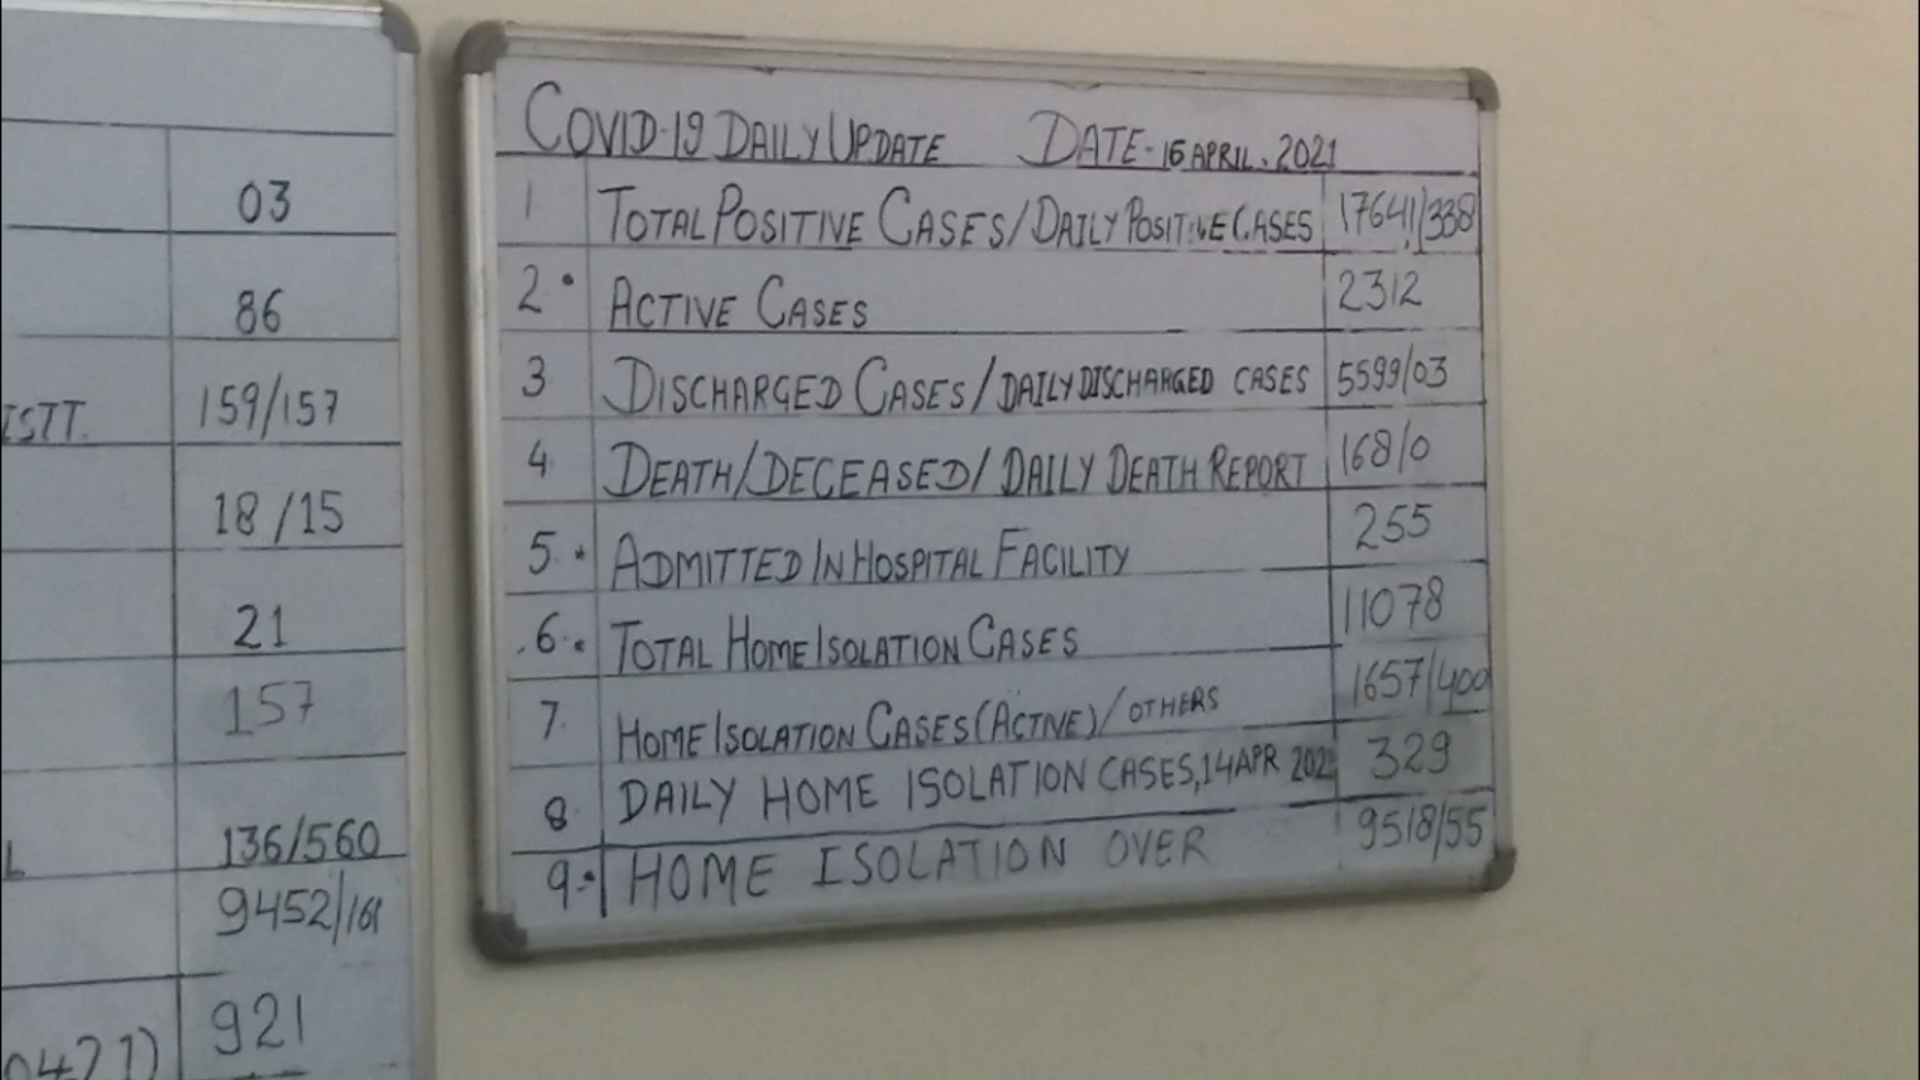 03
86
ISTT. 159/157
18/15
21
157
L 136/560
9452/161
921
0421)
COVID-19 DAILY UPDATE DATE-16 APRIL. 2021
1 TOTAL POSITIVE CASES/DAILY POSITIVE CASES 17641/338
2 ACTIVE CASES 2312
3 DISCHARGED CASES/DAILY DISCHARGED CASES 5599/03
4 DEATH/DECEASED/DAILY DEATH REPORT 168/0
5 ADMITTED IN HOSPITAL FACILITY 255
6 TOTAL HOME ISOLATION CASES 11078
7 HOME ISOLATION CASES(ACTIVE)/OTHERS 1657/400
8 DAILY HOME ISOLATION CASES,14APR 2021 329
9 HOME ISOLATION OVER 9518/55